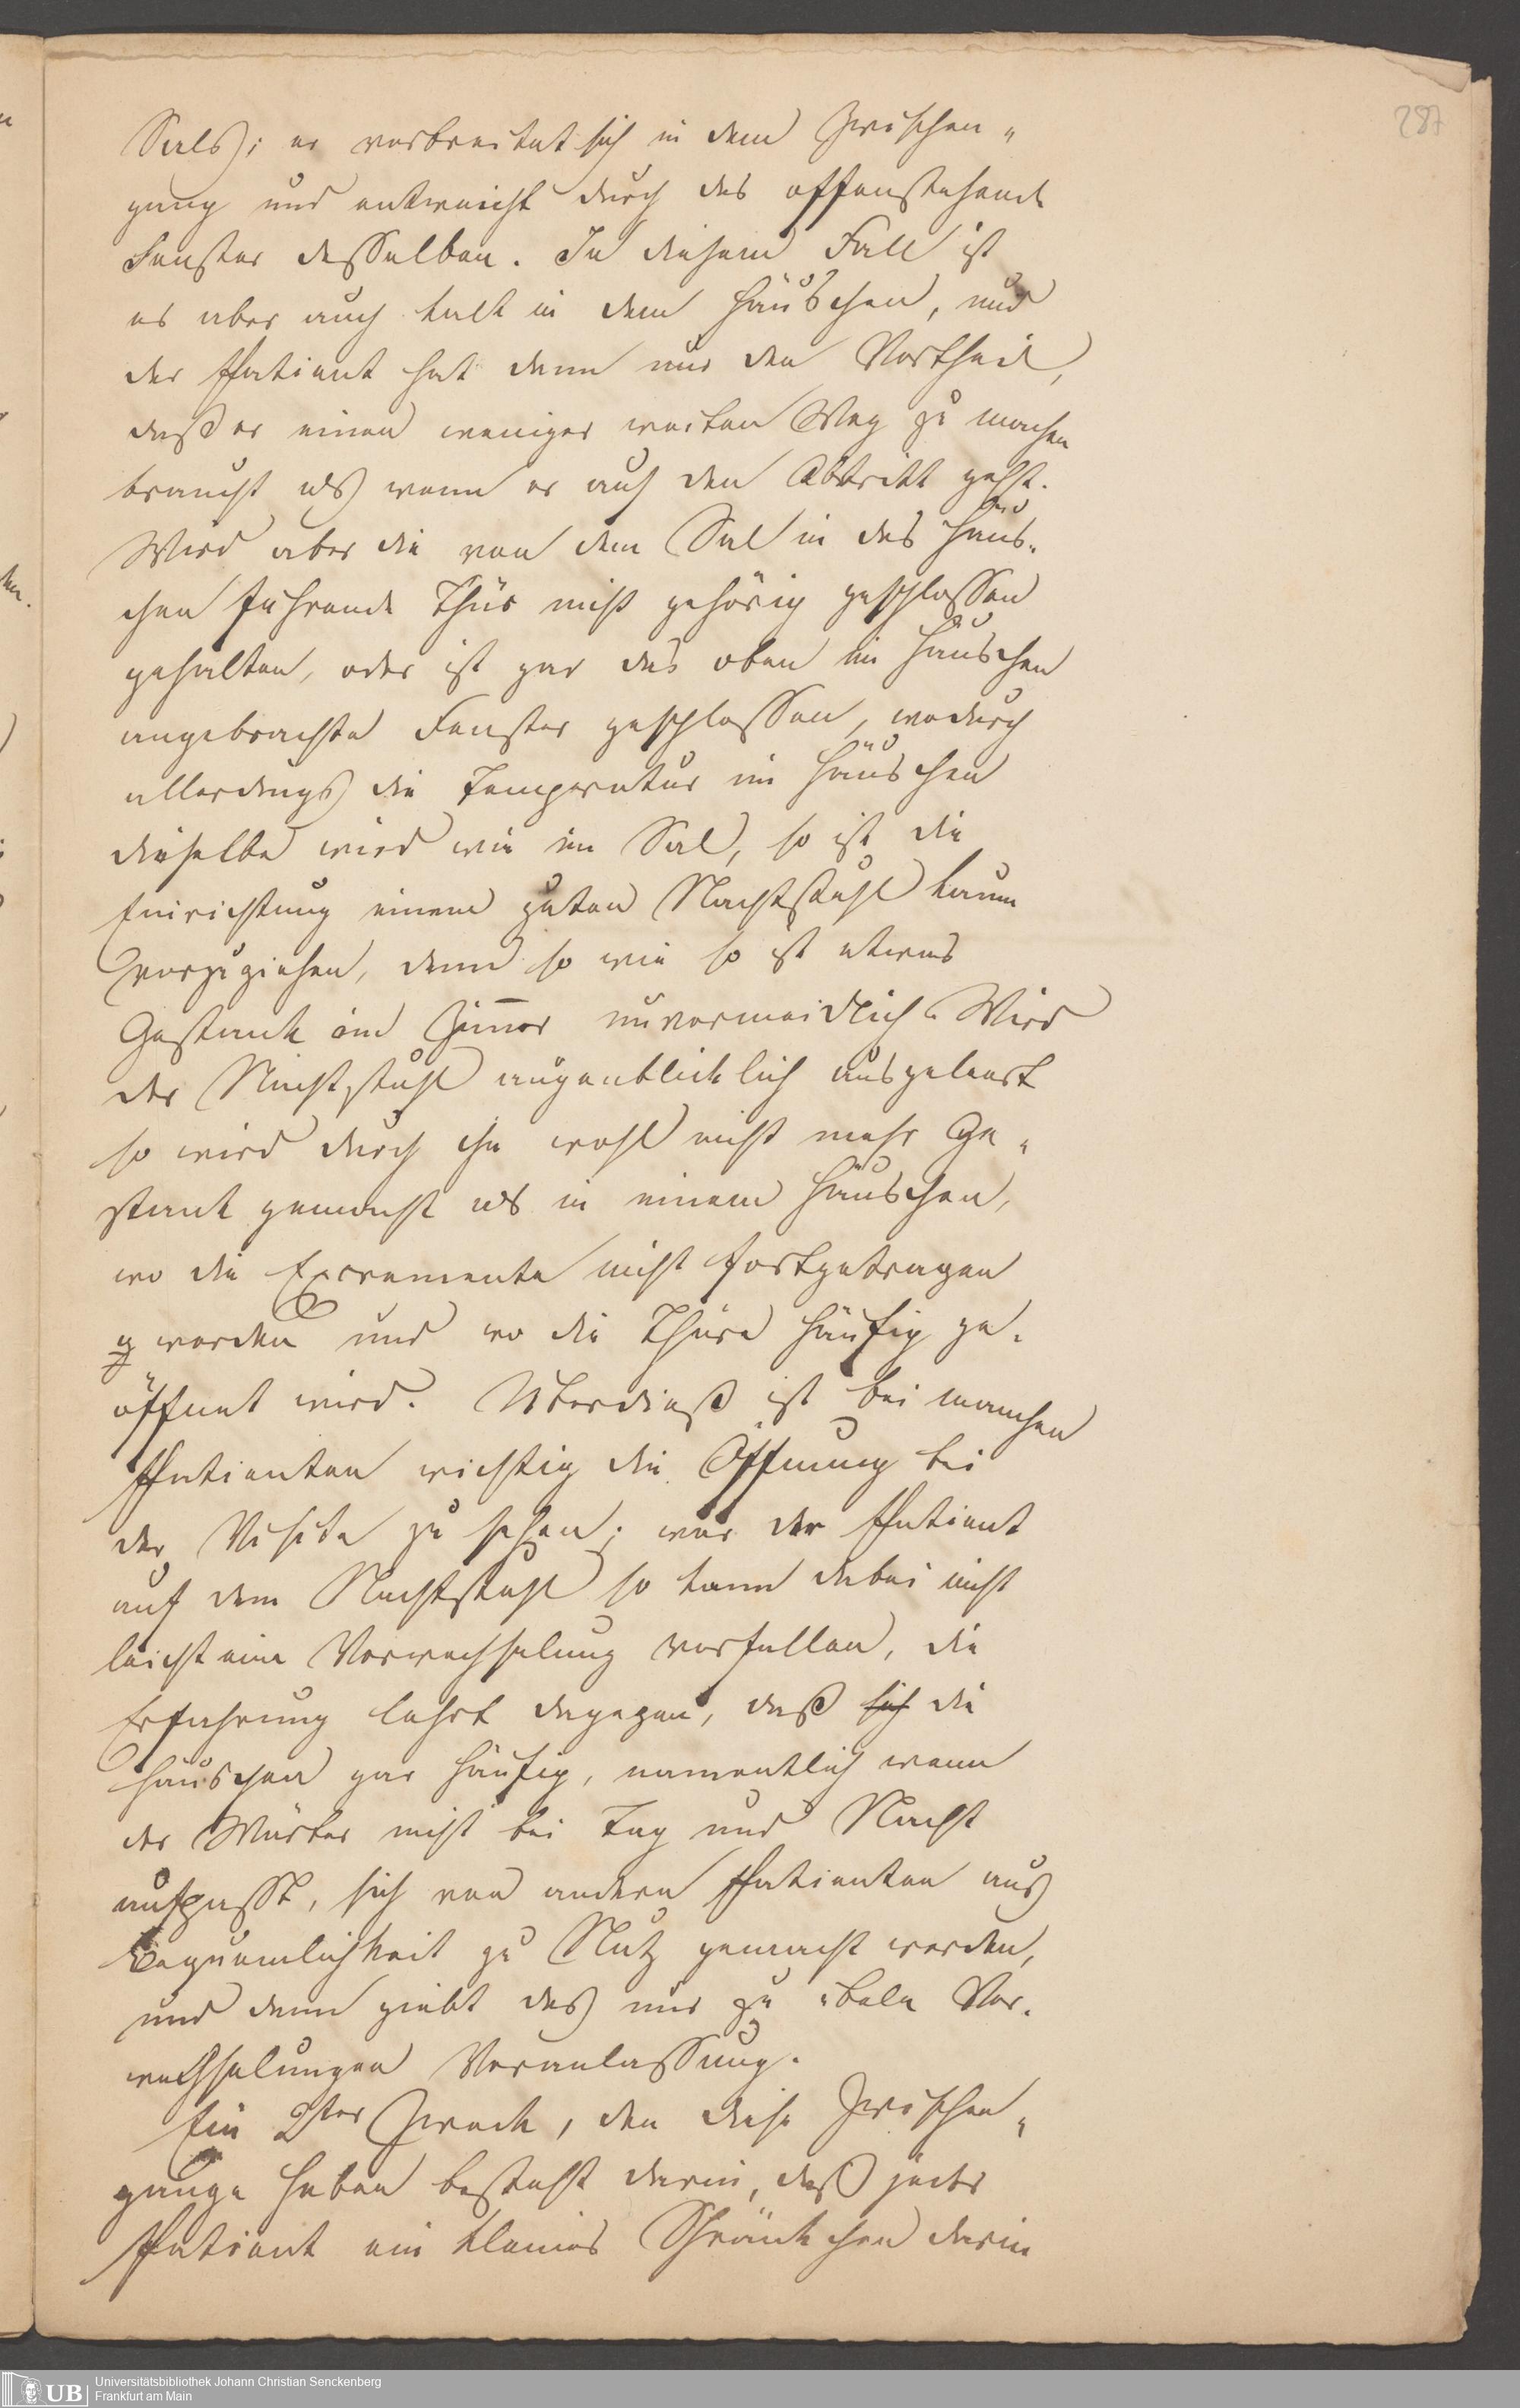 287
Sals; er verbreitet sich in dem Zwischen-
gang und entweicht durch das offenstehende
Fenster desselben. In diesem Fall ist
es aber auch kalt in dem Häuschen, und
der Patient hat dann nur den Vortheil,
daß er einen weniger weiten Weg zu machen
braucht als wenn er auf den Abtritt geht.
Wird aber die von dem Sal in das Häus-
chen führende Thür nicht gehörig geschlossen
gehalten, oder ist gar das oben im Häuschen
angebrachte Fenster geschlossen, wodurch
allerdings die Temperatur im Häuschen
dieselbe wird wie im Sal, so ist die
Einrichtung einem guten Nachtstuhl kaum
vorzuziehen, denn so wie so ist etwas
Gestank im Zimer unvermeidlich. Wird
der Nachtstuhl augenblicklich ausgeleert
so wird durch ihn wohl nicht mehr Ge-
stank gemacht als in einem Häuschen,
wo die Excremente nicht fortgetragen
g werden und wo die Thüre häufig ge-
öffnet wird. Uberdieß ist bei manchen
Patienten wichtig die Öffnung bei
der Visite zu sehen; war der Patient
auf dem Nachtstuhl so kann dabei nicht
leicht eine Verwechselung vorfallen, die
Erfahrung lehrt dagegen, daß sich die
Häuschen gar häufig, namentlich wenn
der Wärter nicht bei Tag und Nacht
aufpasst, sich von andern Patienten aus
Bequemlichkeit zu Nutz gemacht werden,
und dann giebt das nur zu übeln Ver-
wechselungen Veranlassung.
Ein 2ter Zweck, den diese Zwischen-
gänge haben besteht darin, daß jeder
Patient ein kleines Schränkchen darin
UB Universitätsbibliothek Johann Christian Senckenberg
Frankfurt am Main